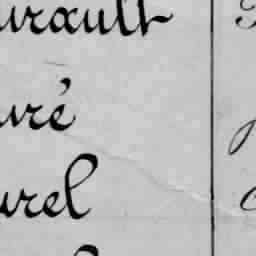 urault
uré
urel